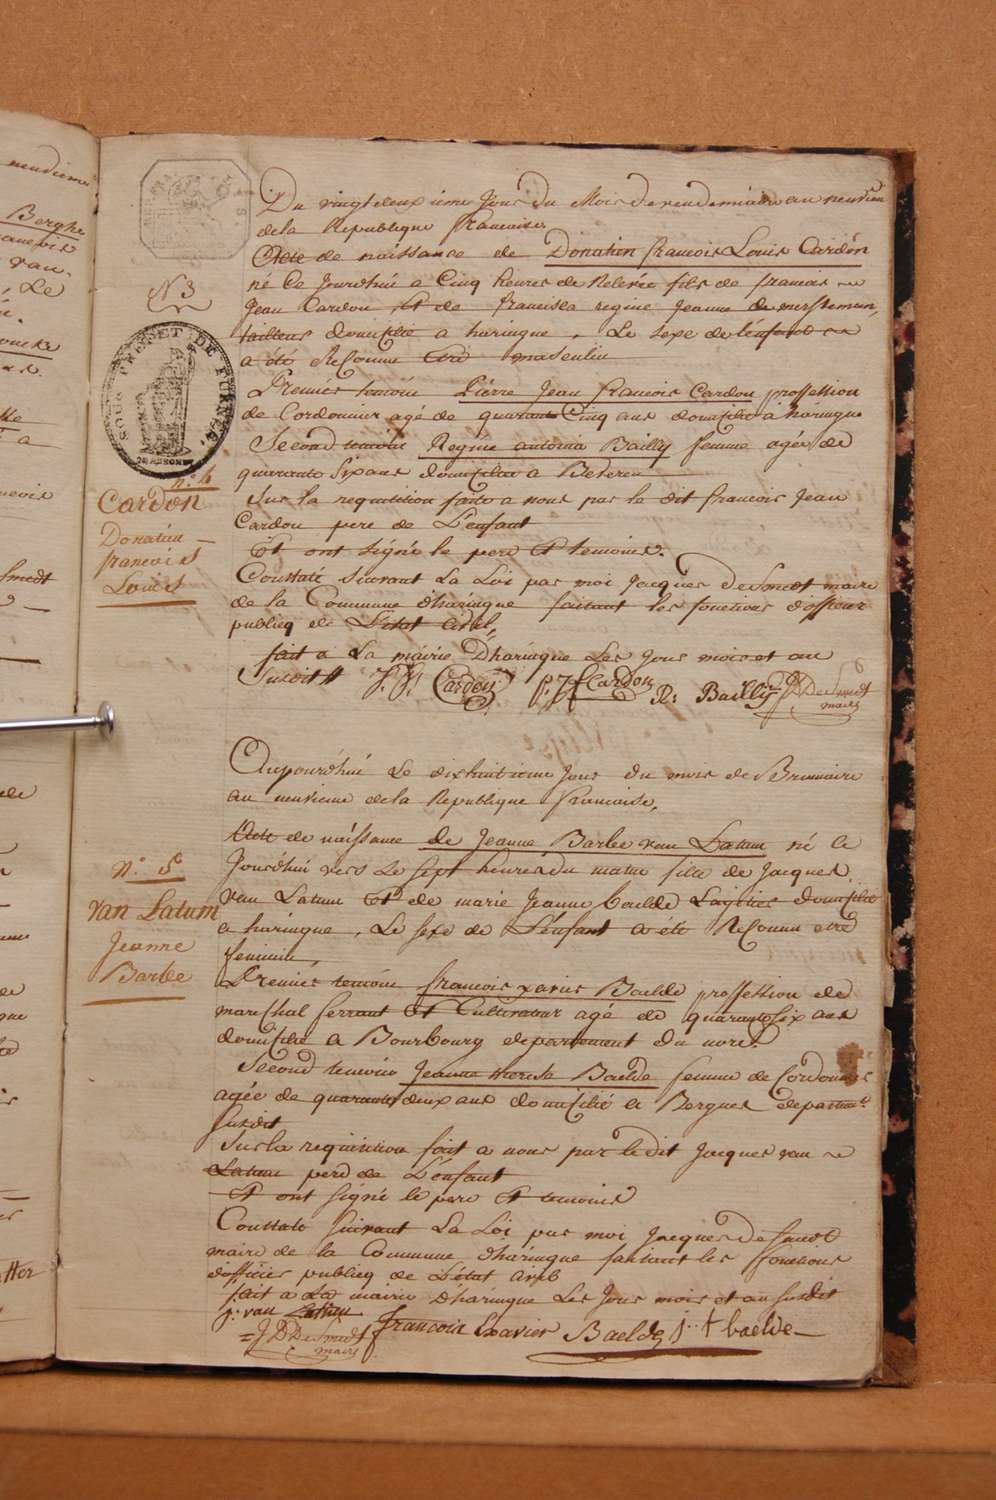 Du vingtdeuxieme Jour du Mois de vendemiaire an neuvien
de la Republique francaise
Acte de naissance de Donatien francois Louis Cardon
né ce Jourdhui a Cinq heures de Relevée fils de francois
Jean Cardon et de francisca regine Jeanne de
tailleur domicilié a haringue, Le sexe de l'enfant
a été Reconnu etre masculin
Premier temoin Pierre Jean francois Cardon proffession
de Cordonnier agé de quarante Cinq ans domicilié a haringue
Second temoin Regine antonia Bailly femme agée de
quarante Six ans domiciliée a Beveren
Sur la requisition faite a nous par le dit francois Jean
Cardon pere de L'enfant
Et ont signé le pere Et temoins.
Constaté suivant La Loi par moi Jacques De Smedt maire
de la Commune d'haringue faisant les fonctions d'officier
publicq de L'etat Civil,
fait a La mairie D'haringue Les Jour mois et an
Susdit F. J. Cardon P. J. F. Cardon R: Bailly J D De Smedt
maire
N 3
SOUS PREFET DE FURNES
n: 4
Cardon
Donatien
francois
Louis
Aujourdhui Le dixhuitieme Jour du mois de Brumaire
an neuvieme de la Republique francaise,
Acte de naissance de Jeanne Barbe van Latum né le
Jourdhui vers Le sept heures du matin fille de Jacques
van Latum Et de marie Jeanne baelde domicilié
a haringue, Le sexe de L'enfant a été Reconnu etre
feminin,
Premier temoin francois xavier Baelde proffession de
marechal ferrant Et Cultivateur agé de quarantesix ans
domicilié a Bourbourg departement du nord.
Second temoin Jeanne therese Baelde femme de Cordonnier
agée de quarante deux ans domicilié a Bergues departmt
susdit
Sur la requisition fait a nous par le dit Jacques van
Latum pere de L'enfant
Et ont signé le pere Et temoins
Constaté suivant La Loi par moi Jacques De Smedt
maire de la Commune d'haringue faisant les fonctions
d'officier publicq de L'etat civil
fait a La mairie D'haringue Les Jour mois et an susdit
j: van Latum francois Xavier Baelde j: t baelde
J D De Smedt
maire
N: 5
Van Latum
Jeanne
Barbe